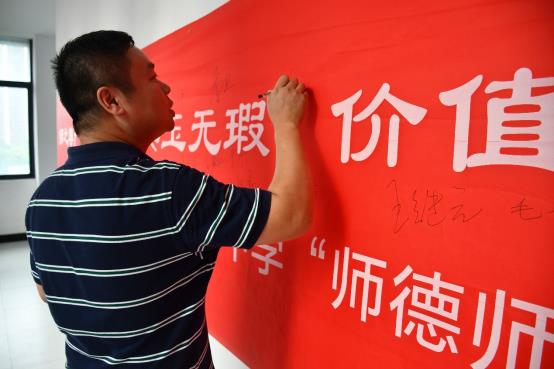 玉无瑕 价值
王继元 毛
学 “师德师